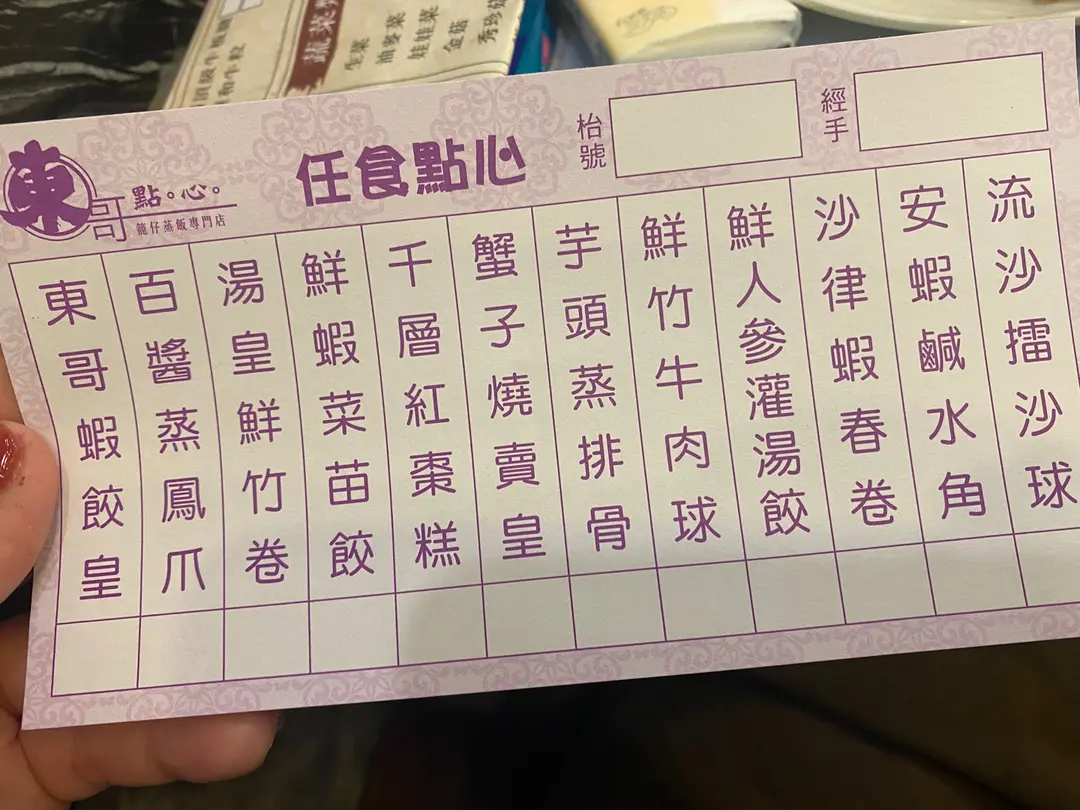 蔬菜類
生菜
油麥菜
娃娃菜
金菇
秀珍菇
東哥
點。心。
籠仔蒸飯專門店
任食點心
枱號
經手
東哥蝦餃皇
百醬蒸鳳爪
湯皇鮮竹卷
鮮蝦菜苗餃
千層紅棗糕
蟹子燒賣皇
芋頭蒸排骨
鮮竹牛肉球
鮮人參灌湯餃
沙律蝦春卷
安蝦鹹水角
流沙擂沙球